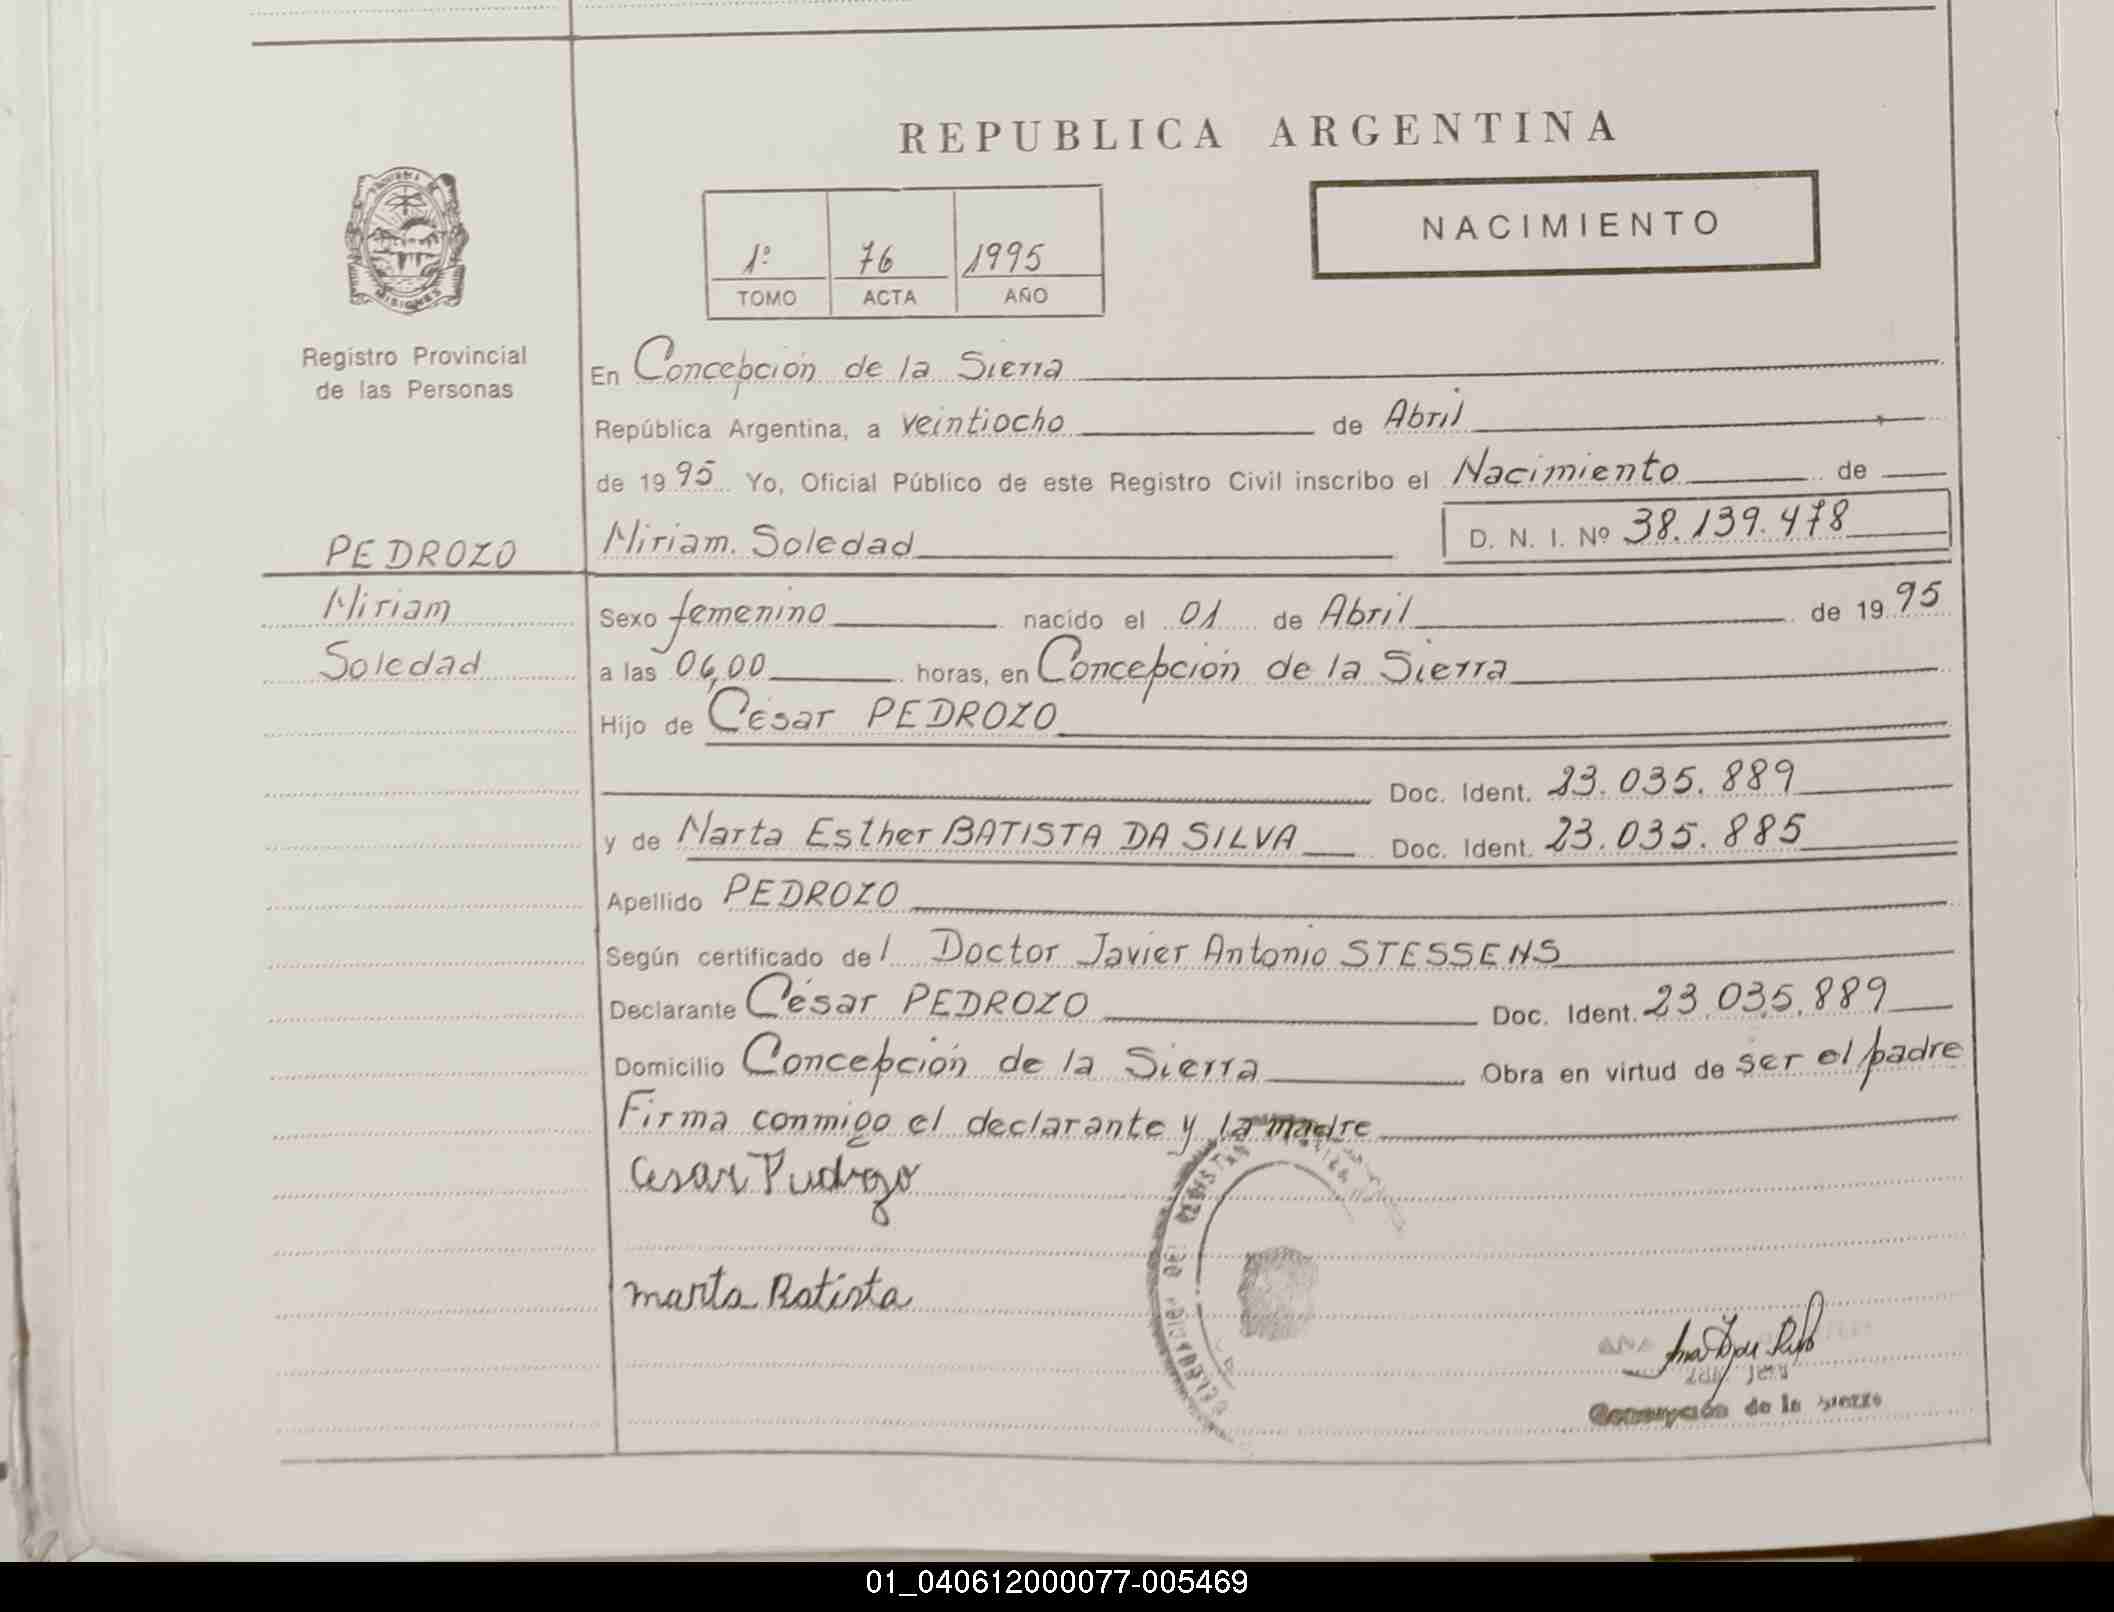 REPUBLICA ARGENTINA
NACIMIENTO
1º 76 1995
TOMO ACTA AÑO
MISIONES
Registro Provincial
de las Personas
En Concepción de la Sierra
República Argentina, a veintiocho de Abril
de 1995 Yo, Oficial Público de este Registro Civil inscribo el Nacimiento de
PEDROZO
Miriam
Soledad
Miriam Soledad D. N. I. Nº 38.139.478
Sexo femenino nacido el 01 de Abril de 1995
a las 06,00 horas, en Concepción de la Sierra
Hijo de César PEDROZO
Doc. Ident. 23.035.889
y de Marta Esther BATISTA DA SILVA Doc. Ident. 23.035.885
Apellido PEDROZO
Según certificado del Doctor Javier Antonio STESSENS
Declarante César PEDROZO Doc. Ident. 23.035.889
Domicilio Concepción de la Sierra Obra en virtud de ser el padre
Firma conmigo el declarante y la madre
Cesar Pedrozo
marta Batista
Concepción de la Sierra
01_040612000077-005469